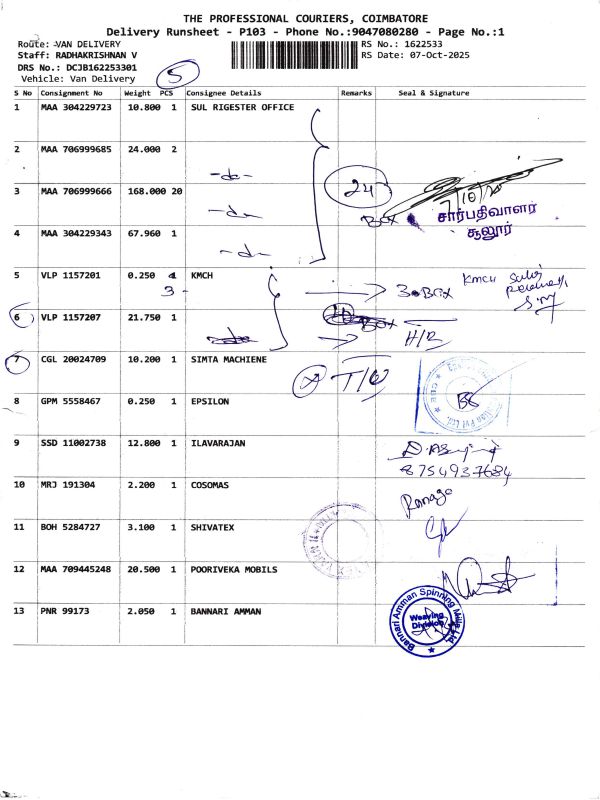 THE PROFESSIONAL COURIERS, COIMBATORE
Delivery Runsheet - P103 - Phone No.:9047080280 - Page No.:1
Route: VAN DELIVERY
RS No.: 1622533
Staff: RADHAKRISHNAN V
RS Date: 07-Oct-2025
DRS No.: DCJB162253301
Vehicle: Van Delivery
5
S No Consignment No Weight PCS Consignee Details Remarks Seal & Signature
1 MAA 304229723 10.800 1 SUL RIGESTER OFFICE
2 MAA 706999685 24.000 2
-do-
3 MAA 706999666 168.000 20
-do-
24
Box
7/10/25
சார்பதிவாளர்
சூலூர்
4 MAA 304229343 67.960 1
-do-
5 VLP 1157201 0.250 KMCH
3 -
3 Box
KMCH
6 VLP 1157207 21.750 1
Box
H/R
7 CGL 20024709 10.200 1 SIMTA MACHIENE
8 GPM 5558467 0.250 1 EPSILON
9 SSD 11002738 12.800 1 ILAVARAJAN
8754937684
10 MRJ 191304 2.200 1 COSOMAS
11 BOH 5284727 3.100 1 SHIVATEX
12 MAA 709445248 20.500 1 POORIVEKA MOBILS
13 PNR 99173 2.050 1 BANNARI AMMAN
Bannari Amman Spinning Mills Ltd.
Weaving
Division